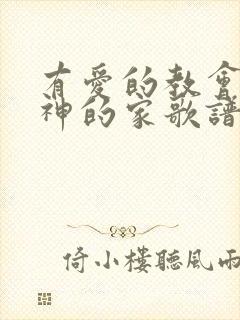 有愛的教會
神的家歌譜
倚小樓聽風雨